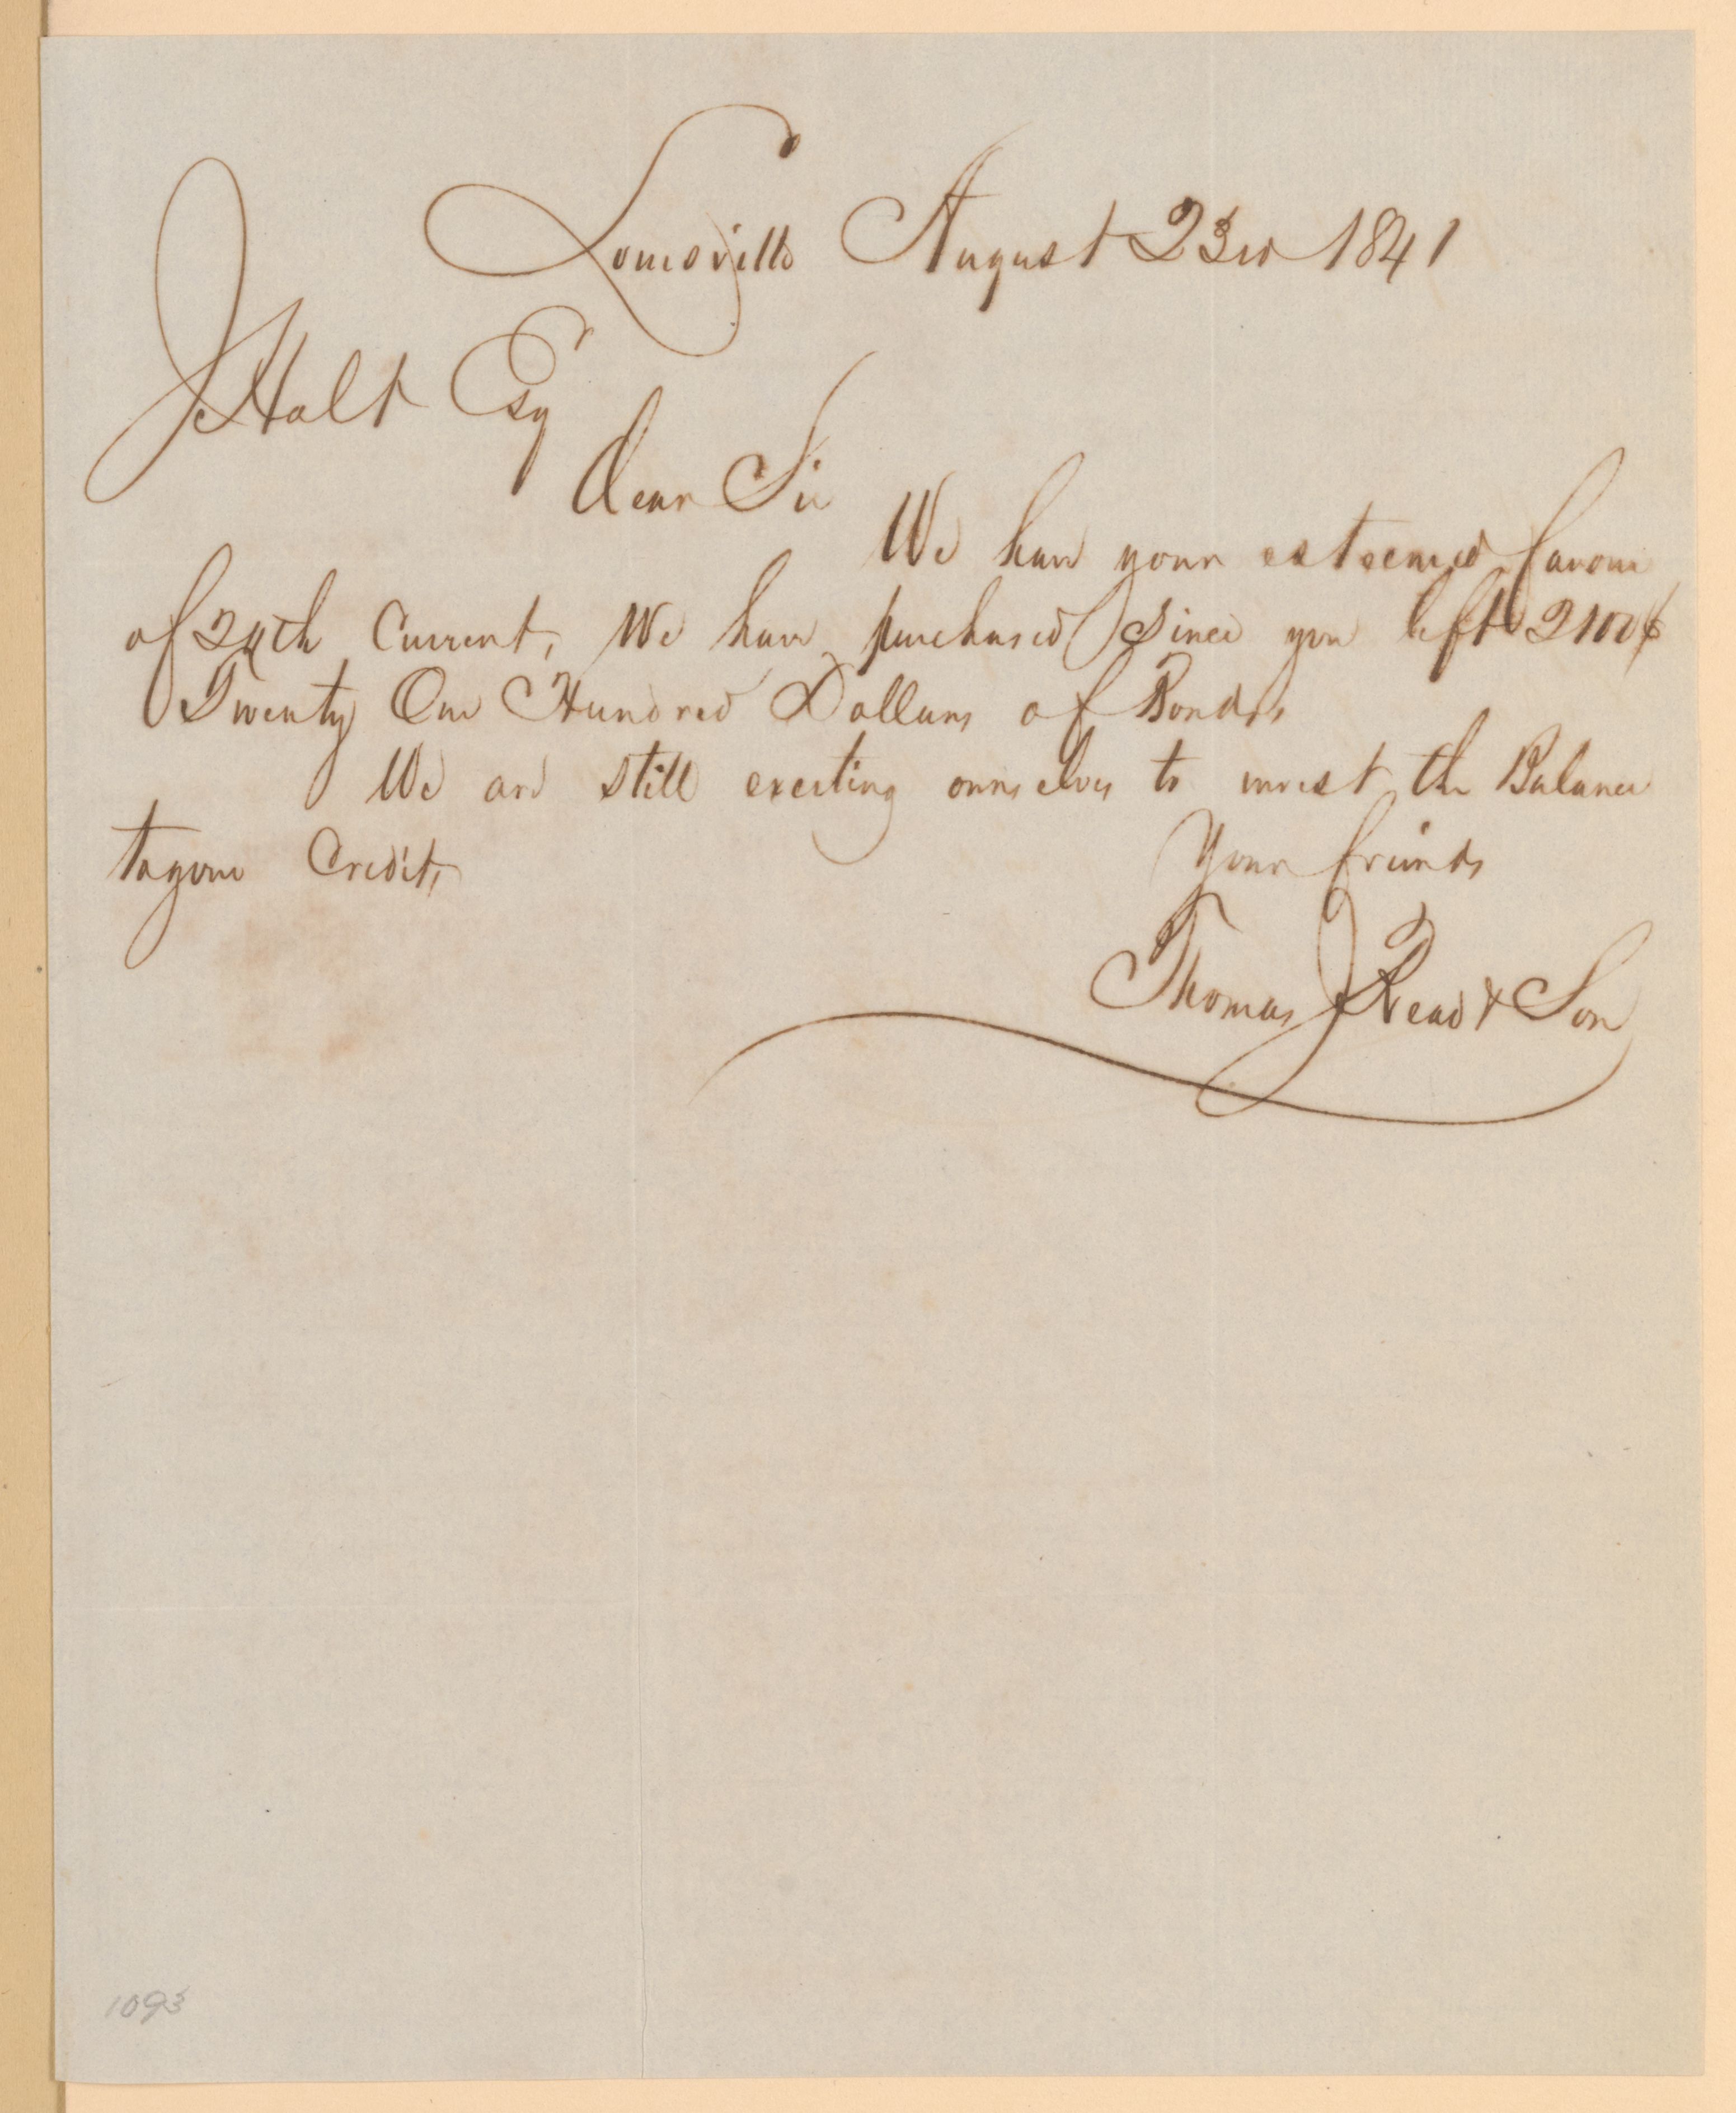 Louisville August 23rd 1841
J Holt Esq
Dear Sir
We have your esteemed favour
of 20th Current, We have purchased Since you left 2100$
Twenty One Hundred Dollars of Bonds,
We are still exerting ourselves to invest the Balance
to your Credit,
Your friends
Thomas J Read & Son
1093